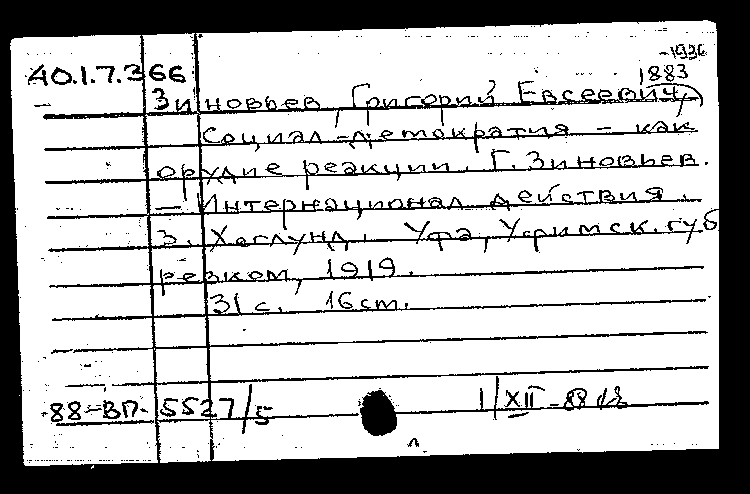 -1936
40.1.7.366 1883
Зиновьев, Григорий Евсеевич,
Социал-демократия - как
орудие реакции. Г. Зиновьев.
- Интернационал действия.
З. Хеглунд. Уфа, Уфимск. губ
ревком, 1919.
31 с. 16 см.
88-ВП-5527/5 1/XII-88